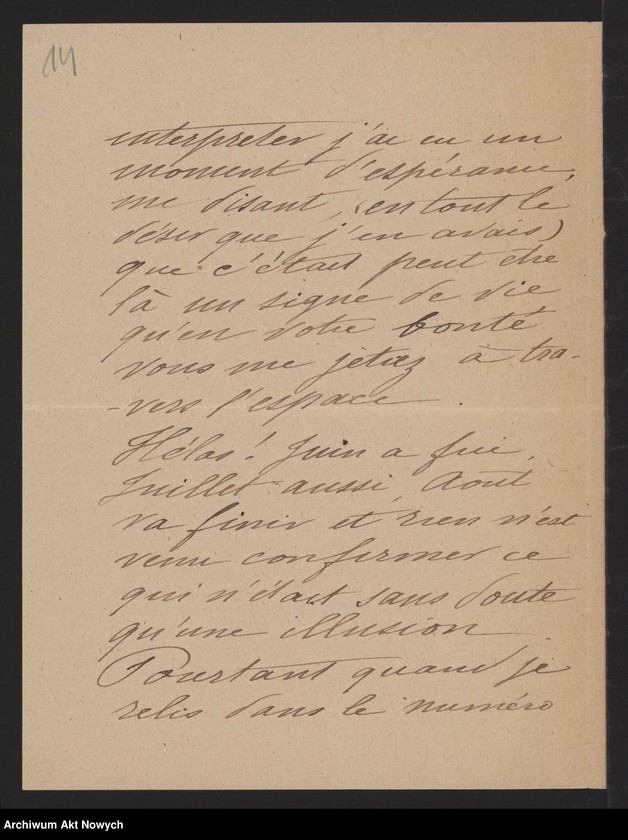 14
interpréter j'ai eu un
moment d'espérance,
me disant, (en tout le
désir que j'en avais)
que c'était peut être
là un signe de vie
qu'en votre bonté
vous me jetiez à tra-
-vers l'espace.
Hélas! Juin a fui,
Juillet aussi, Août
va finir et rien n'est
venu confirmer ce
qui n'était sans doute
qu'une illusion.
Pourtant quand je
relis dans le numéro
Archiwum Akt Nowych